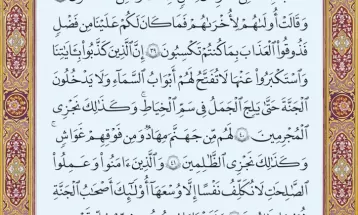 وَقَالَتْ أُولَىٰهُمْ لِأُخْرَىٰهُمْ فَمَا كَانَ لَكُمْ عَلَيْنَا مِن فَضْلٍ
فَذُوقُوا۟ ٱلْعَذَابَ بِمَا كُنتُمْ تَكْسِبُونَ ۝٣٩ إِنَّ ٱلَّذِينَ كَذَّبُوا۟ بِـَٔايَـٰتِنَا
وَٱسْتَكْبَرُوا۟ عَنْهَا لَا تُفَتَّحُ لَهُمْ أَبْوَٰبُ ٱلسَّمَآءِ وَلَا يَدْخُلُونَ
ٱلْجَنَّةَ حَتَّىٰ يَلِجَ ٱلْجَمَلُ فِى سَمِّ ٱلْخِيَاطِ ۚ وَكَذَٰلِكَ نَجْزِى
ٱلْمُجْرِمِينَ ۝٤٠ لَهُم مِّن جَهَنَّمَ مِهَادٌ وَمِن فَوْقِهِمْ غَوَاشٍ ۚ
وَكَذَٰلِكَ نَجْزِى ٱلظَّـٰلِمِينَ ۝٤١ وَٱلَّذِينَ ءَامَنُوا۟ وَعَمِلُوا۟
ٱلصَّـٰلِحَـٰتِ لَا نُكَلِّفُ نَفْسًا إِلَّا وُسْعَهَآ أُو۟لَـٰٓئِكَ أَصْحَـٰبُ ٱلْجَنَّةِ